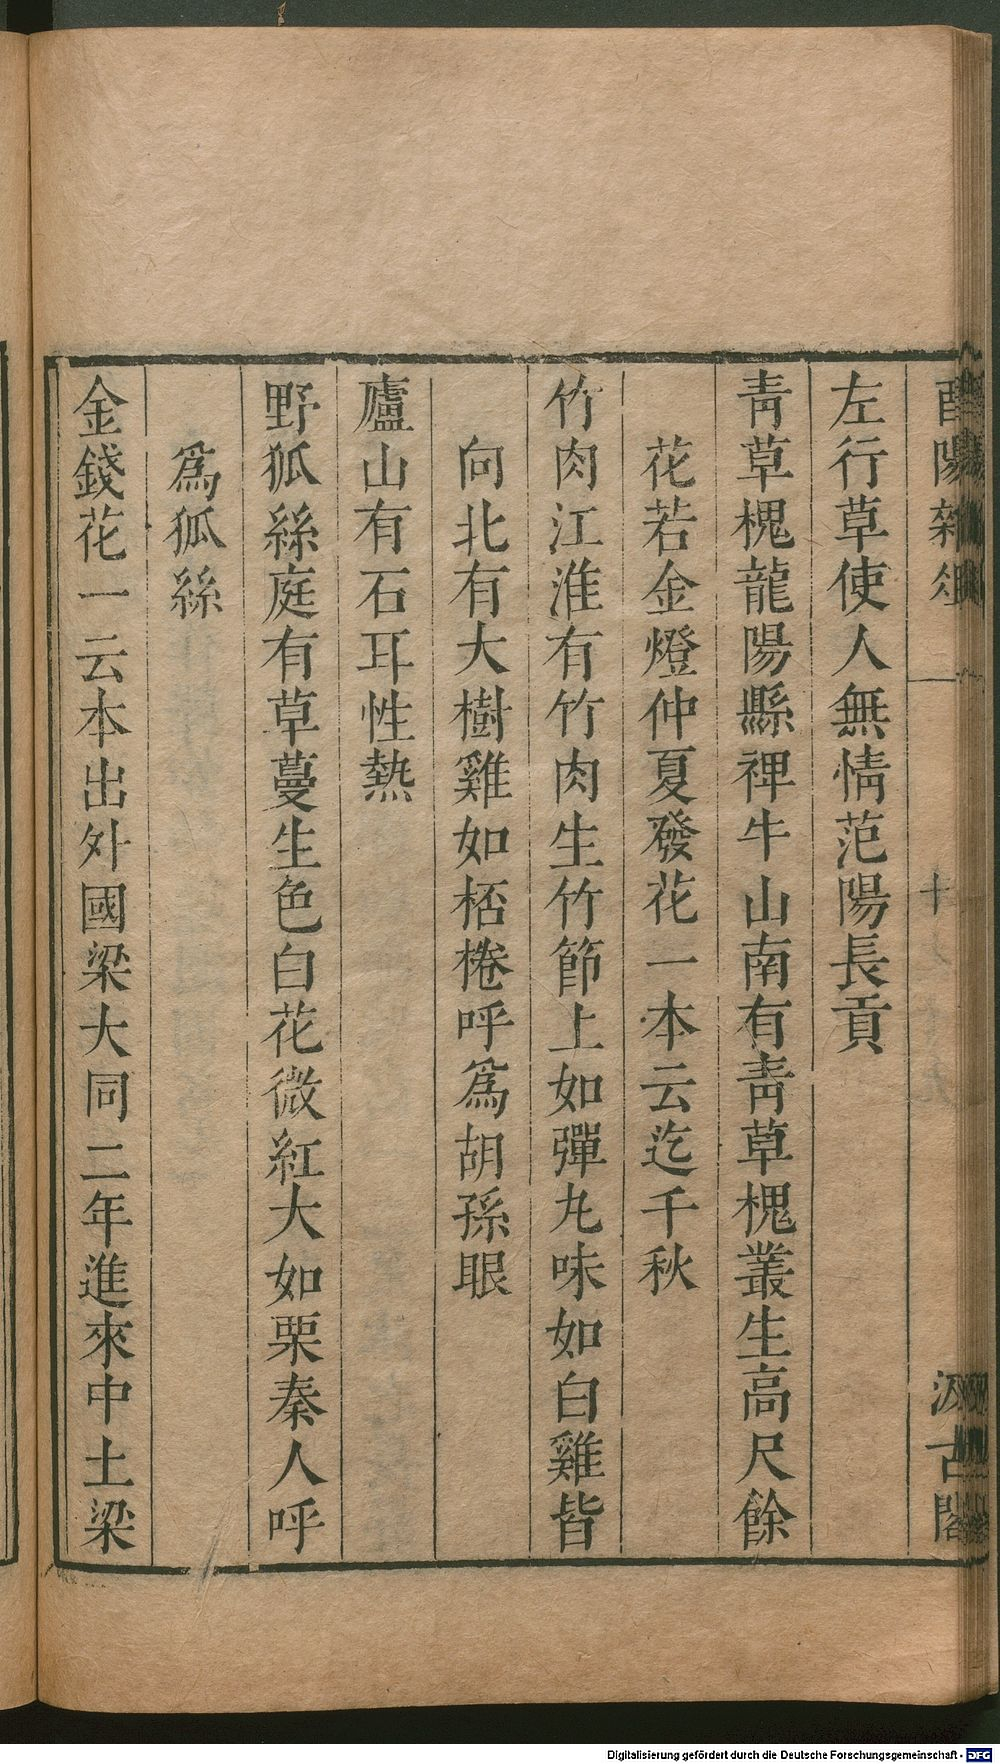 酉陽雜俎
十
汲古閣
左行草使人無情范陽長貢
青草槐龍陽縣裨牛山南有青草槐叢生高尺餘
花若金燈仲夏發花一本云迄千秋
竹肉江淮有竹肉生竹節上如彈丸味如白雞皆
向北有大樹雞如桮棬呼爲胡孫眼
廬山有石耳性熱
野狐絲庭有草蔓生色白花微紅大如栗秦人呼
爲狐絲
金錢花一云本出外國梁大同二年進來中土梁
Digitalisierung gefördert durch die Deutsche Forschungsgemeinschaft - DFG